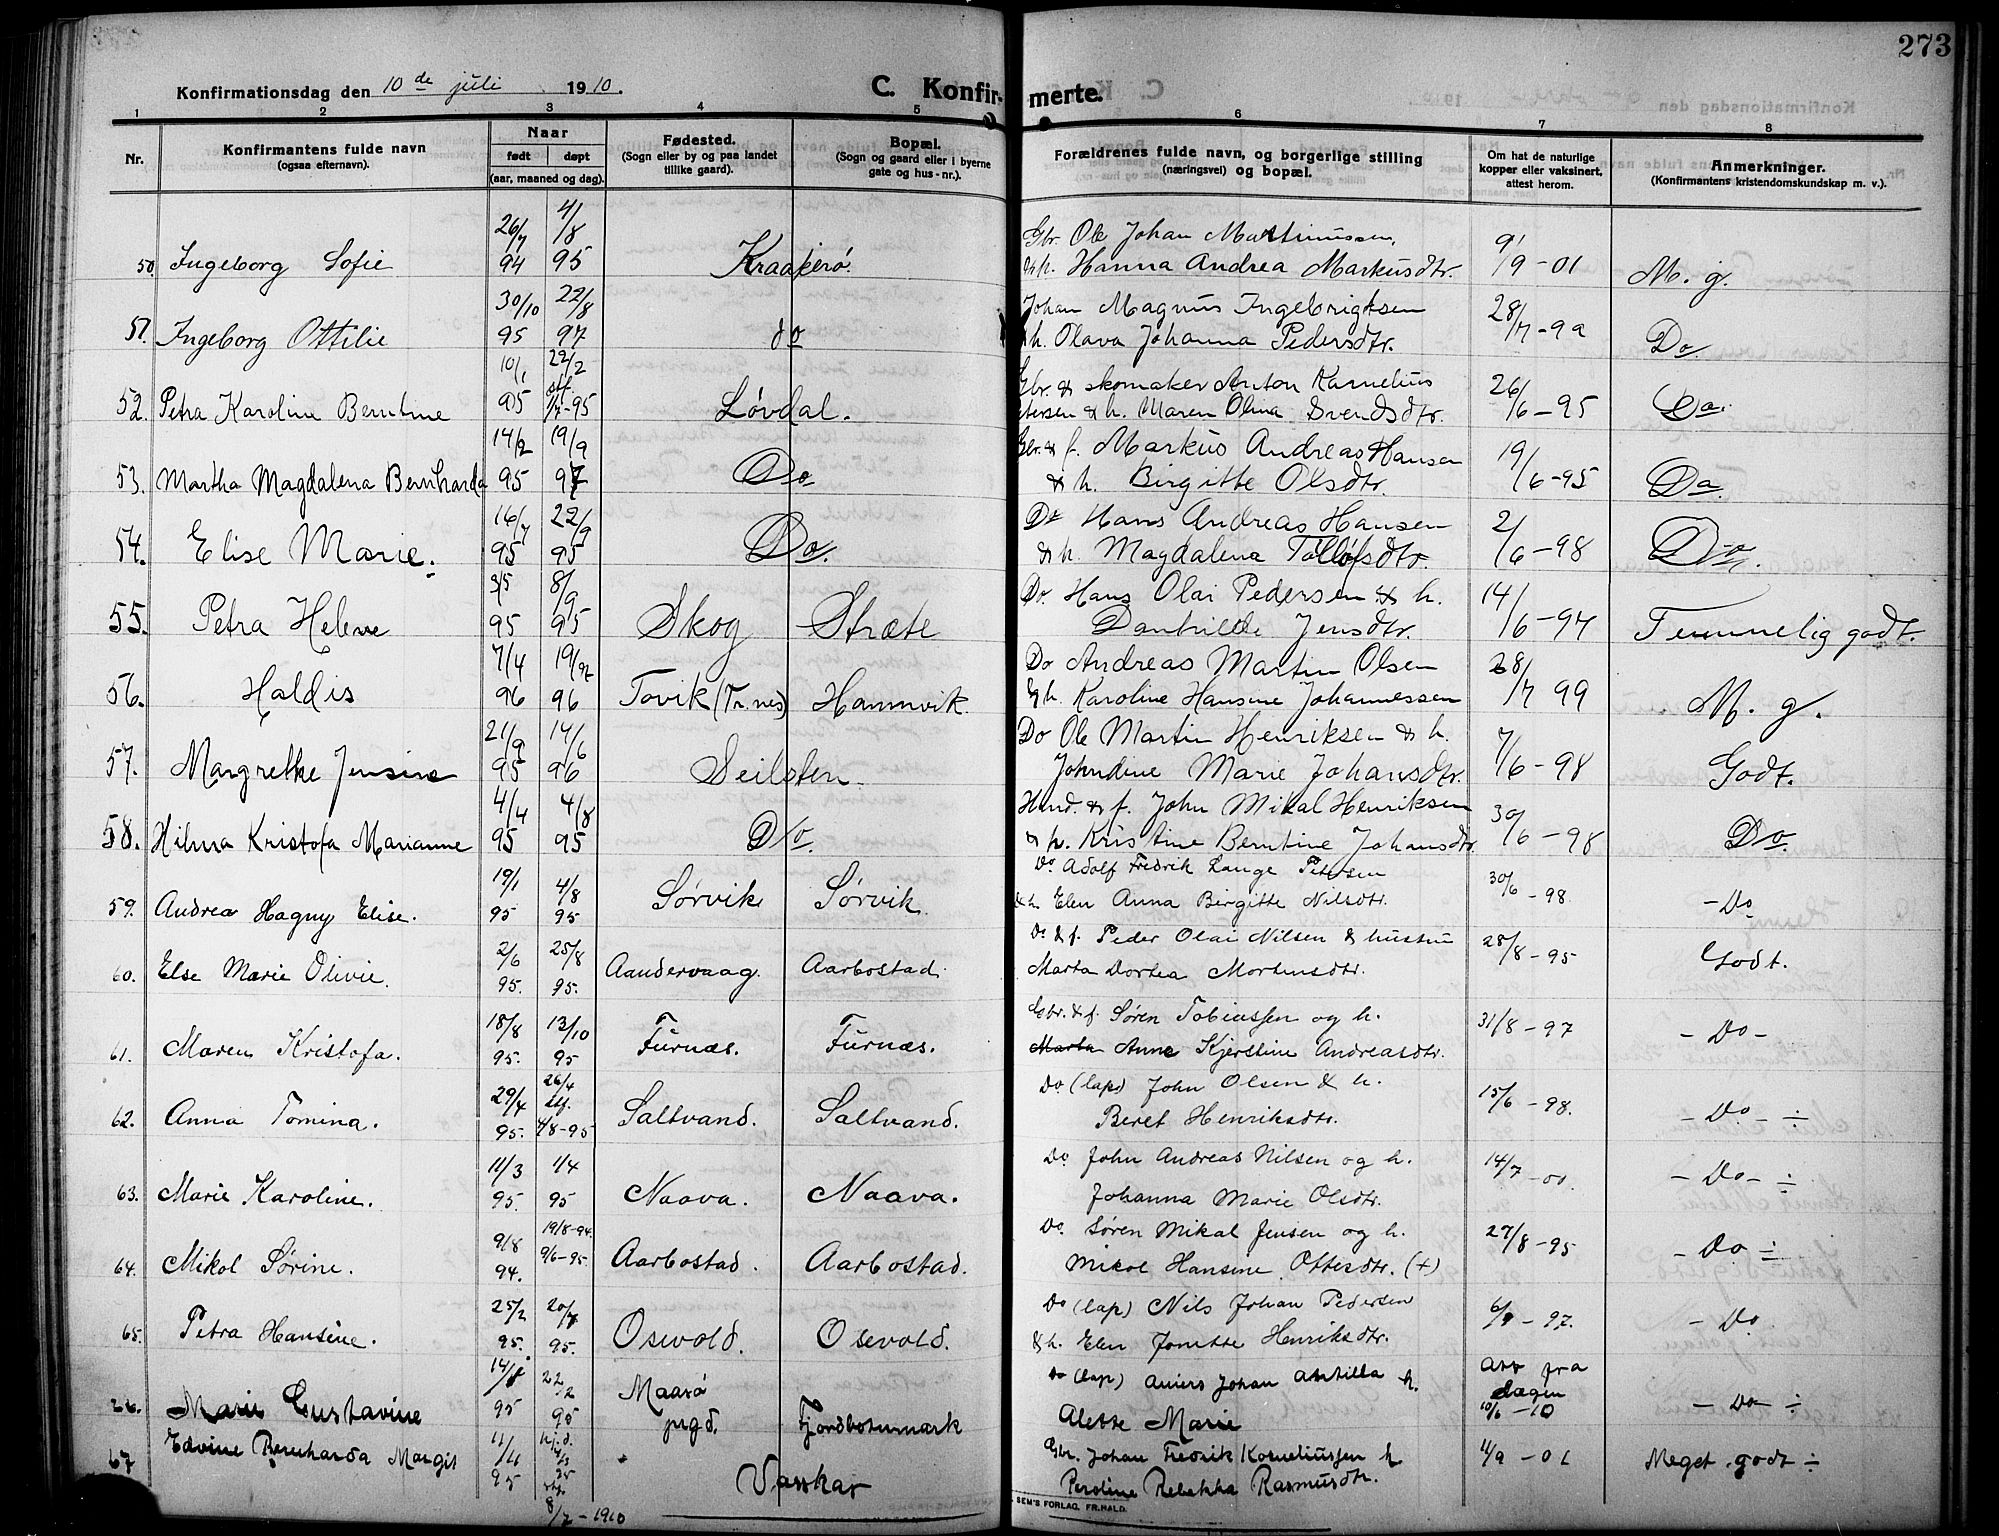 273
Konfirmationsdag den 10 de juli 1910.
C. Konfirmerte.
1 2 3 4 5 6 7 8
Nr.
Konfirmantens fulde navn
(ogsaa efternavn).
Naar
født døpt
(aar, maaned og dag).
Fødested.
(Sogn eller by og paa landet
tillike gaard).
Bopæl.
(Sogn og gaard eller i byerne
gate og hus-nr.).
Forældrenes fulde navn, og borgerlige stilling
(næringsvei) og bopæl.
Om hat de naturlige
kopper eller vaksinert,
attest herom.
Anmerkninger.
(Konfirmantens kristendomskundskap m. v.).
26/7 4/8 Gbr. Ole Johan Martinussen, 9/
50. Ingeborg Sofie 94 95 Kraakerø. Hanna Andrea Markusdtr. /9-01 M. g.
30/10 22/8 Johan Magnus Ingebrigtsen 28/
51. Ingeborg Ottilie 95 97 do h. Olava Johanna Pedersdtr. /7-99 Do
10/1 22/2 Gbr. & skomaker Anton Kornelius 26/
52. Petra Karoline Berntine 95 /7-95 Løvdal. & h. Maren Olina Svendsdtr. /6-95 Do.
14/2 19/9 Gbr. & f. Markus Andreas Hansen 19/
53. Martha Magdalena Bernharda 95 97 Do & h. Birgitte Olsdtr. /6-95 Do.
16/7 22/9 Do Hans Andreas Hansen 2/
54. Elise Marie. 95 95 Do. & h. Magdalena Tollofsdtr. /6-98 Do.
3/5 8/9 Do. Hans Olai Pedersen & h. 14/
55. Petra Helene 95 95 Skog Stræte Danhilde Jensdtr. /6-97 Temmelig godt.
7/4 19/ Do Andreas Martin Olsen 28/
56. Haldis 96 96 Tovik (Tr.nes) Hamnvik h. Karoline Hansine Johannessen /7 99 M. g.
21/9 14/6 Do Ole Martin Henriksen & h. 7/
57. Margrethe Jensine 95 96 Seilsten. Johndine Marie Johansdtr. /6-98 Godt.
4/4 4/8 & f. John Mikal Henriksen 30/
58. Hilma Kristofa Marianne 95 95 Do. & h. Kristine Berntine Johansdtr. /6-98 Do.
19/1 4/8 Do. Adolf Fredrik Lange Petersen 30/6
59. Andrea Hagny Elise. 95 95 Sørvik Sørvik. & h. Elen Anna Birgitte Nilsdtr. -98. -Do
2/6 25/8 Do & f. Peder Olai Nilsen & hustru 28/8-95
60. Else Marie Olivie. 95. 95. Aandervaag. Aarbostad. Marta Dortea Mortensdtr. Godt.
18/8 13/10 Gbr. & f. Søren Tobiassen og h. 31/8-97
61. Maren Kristofa. 95. 95 Furnæs. Furnæs. Marta Anne Kjerstine Andreasdtr. -Do-
29/4 26/4 Do (lap) John Olsen & h. 15/6-98.
62. Anna Tomina. 95. 4/8-95 Saltvand. Saltvand. Beret Henriksdtr. -Do-÷
11/3 1/4 Do. John Andreas Nilsen og h. 14/7-00.
63. Marie Karoline. 95. 95 Naava. Naava. Johanna Marie Olsdtr. -Do-÷
9/8 19/8-94. Do. Søren Mikal Jensen og h. 27/8-95
64. Mikol Sørine. 94. 9/6-95. Aarbostad. Aarbostad. Mikol Hansine Ottesdtr. (+) -Do ÷
25/2 20/7 Do (lap) Nils Johan Pedersen 6/9-97.
65. Petra Hansine. 95. 95. Osevold. Osevold. & h. Elen Jonette Henriksdtr. -Do.
14/ 22/2 Maasø Do (lap) Johan h. fra dagen
Marie Gustavine 95 95 pgd. Fjordbotnmark Alette Marie 10/6-10 -Do ÷
67 Edvine Bernharda Margit 11/11 Gbr. Johan Fredrik Korneliussen h 11/9-01 Meget godt ÷
95 Vasskar Peroline Rebekka Rasmusdtr.
8/7-1910
SEM'S FORLAG, FR.HALD.